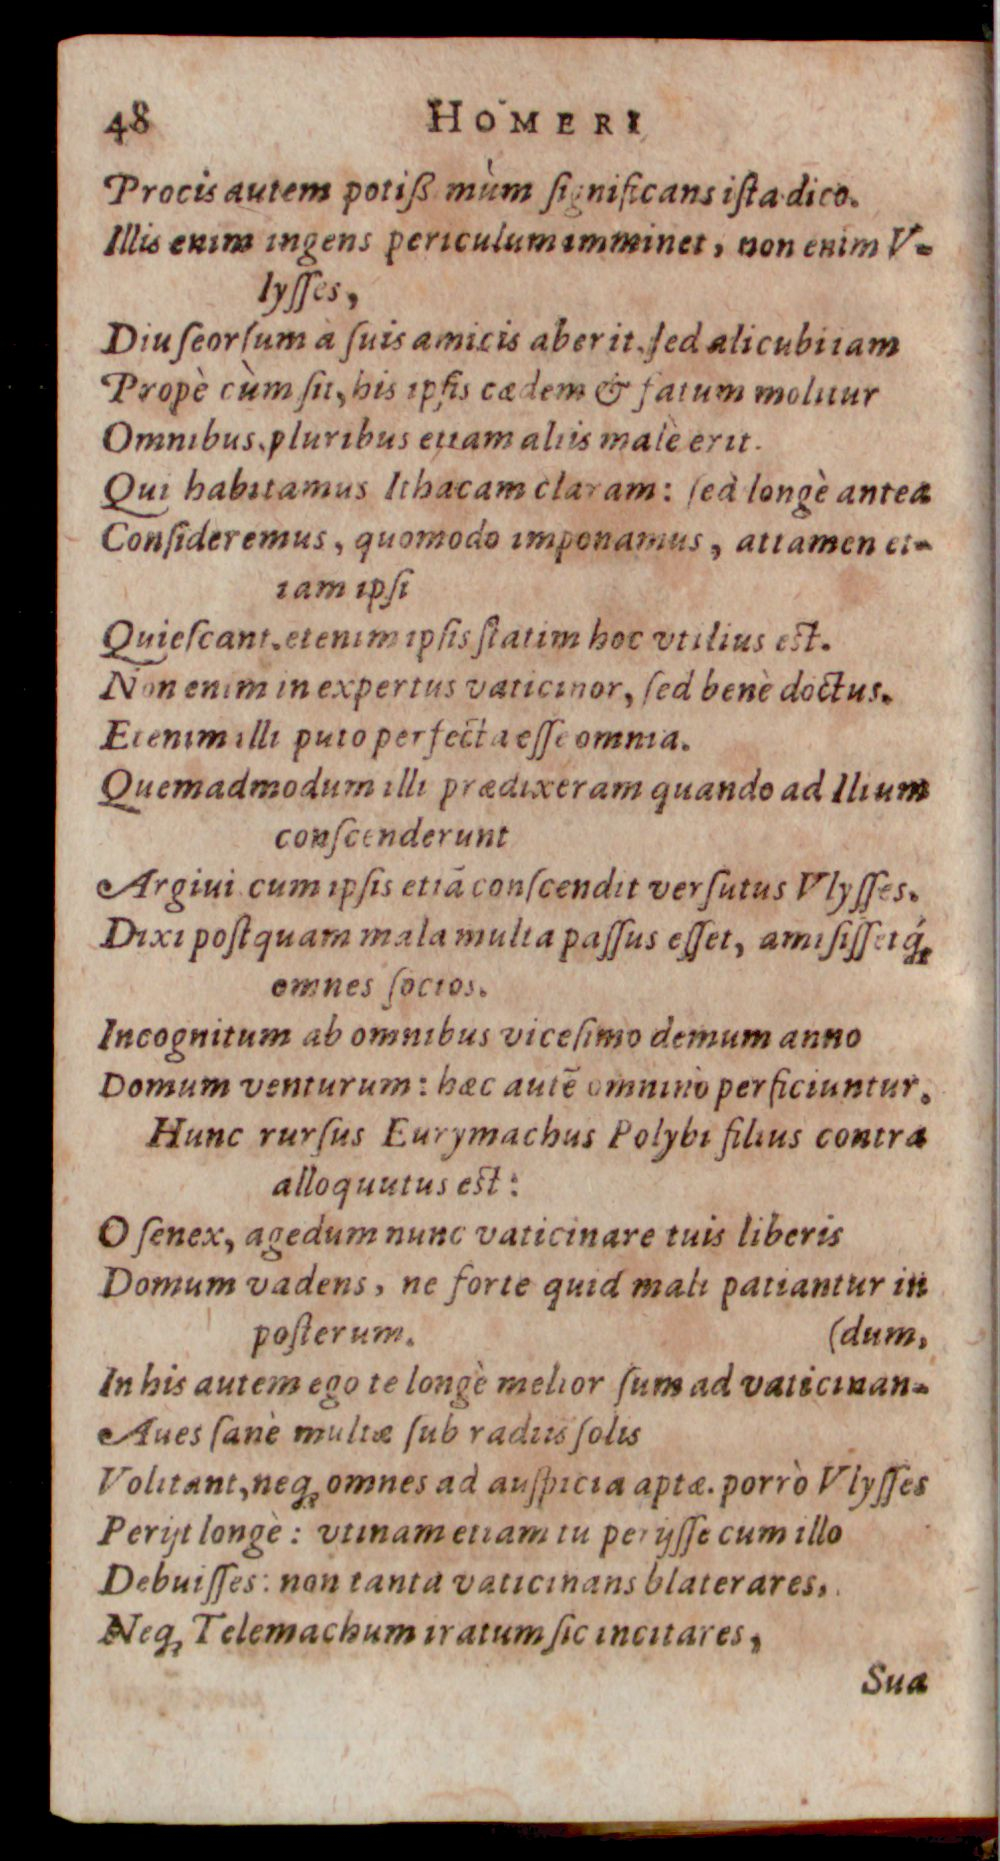 48 HOMERI
Procis autem potiß mùm ſignificans iſta dico.
Illis enim ingens periculum imminet, non enim V-
lyſſes,
Diu ſeorſum à ſuis amicis aberit. ſed alicubi iam
Propè cùm ſit, his ipſis cædem & fatum molitur
Omnibus. pluribus etiam aliis malè erit.
Qui habitamus Ithacam claram: ſed longè antea
Conſideremus, quomodo imponamus, attamen et-
iam ipſi
Quieſcant. etenim ipſis ſtatim hoc vtilius eſt.
Non enim inexpertus vaticinor, ſed benè doctus.
Etenim illi puto perfecta eſſe omnia.
Quemadmodum illi prædixeram quando ad Ilium
conſcenderunt
Argiui cum ipſis etiā conſcendit verſutus Vlyſſes.
Dixi poſtquam mala multa paſſus eſſet, amiſiſſetq́;
omnes ſocios.
Incognitum ab omnibus viceſimo demum anno
Domum venturum: hæc autē omninò perficiuntur.
Hunc rurſus Eurymachus Polybi filius contra
alloquutus eſt:
O ſenex, agedum nunc vaticinare tuis liberis
Domum vadens, ne forte quid mali patiantur in
poſterum. (dum,
In his autem ego te longè melior ſum ad vaticinan-
Aues ſanè multæ ſub radiis ſolis
Volitant, neq; omnes ad auſpicia aptæ. porrò Vlyſſes
Perijt longè: vtinam etiam tu perijſſe cum illo
Debuiſſes: non tanta vaticinans blaterares,
Neq; Telemachum iratum ſic incitares,
Sua